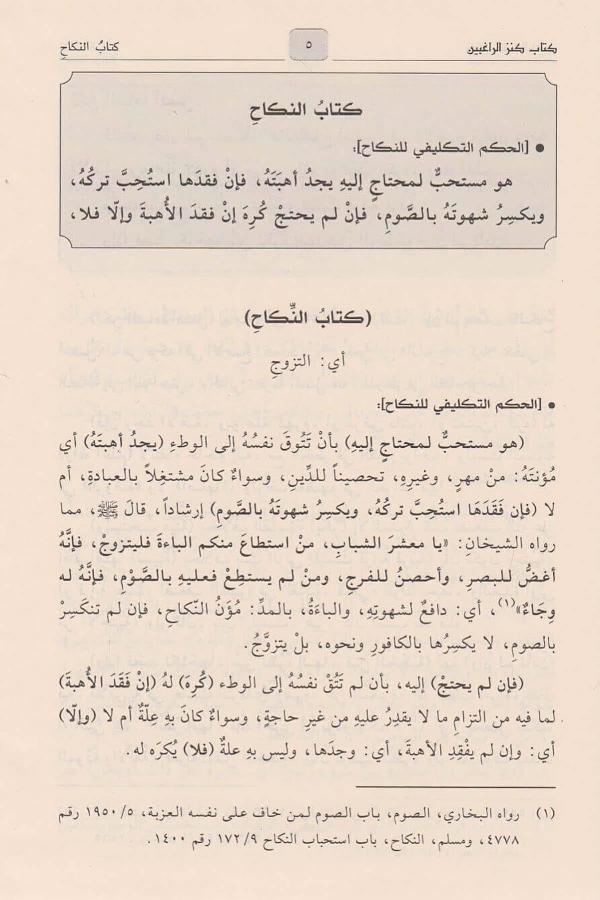 كتاب كنز الراغبين
٥
كتابُ النكاحِ
كتابُ النكاحِ
● [الحكم التكليفي للنكاح]:
هو مستحبٌّ لمحتاجٍ إليهِ يجدُ أهبَتَهُ، فإنْ فقدَها استُحِبَّ تركُهُ،
ويكسِرُ شهوتَهُ بالصَّومِ، فإنْ لم يحتجْ كُرِهَ إنْ فقدَ الأُهبةَ وإلّا فلا،
(كتابُ النِّكاحِ)
أي: التزوجِ
● [الحكم التكليفي للنكاح]:
(هو مستحبٌّ لمحتاجٍ إليهِ) بأنْ تَتُوقَ نفسُهُ إلى الوطءِ (يجدُ أهبتَهُ) أي
مُؤنتَهُ: منْ مهرٍ، وغيرِهِ، تحصيناً للدِّينِ، وسواءٌ كانَ مشتغِلاً بالعبادةِ، أم
لا (فإن فَقَدَهَا استُحِبَّ تركُهُ، ويكسِرُ شهوتَهُ بالصومِ) إرشاداً، قالَ ﷺ، مما
رواه الشيخانِ: «يا معشرَ الشبابِ، منْ استطاعَ منكم الباءةَ فليتزوجْ، فإنَّهُ
أغضُّ للبصرِ، وأحصنُ للفرجِ، ومنْ لم يستطِعْ فعليهِ بالصَّوْمِ، فإنَّهُ له
وِجَاءٌ»(١)، أي: دافعٌ لشهوتِهِ، والباءَةُ، بالمدِّ: مُؤَنُ النّكاحِ، فإن لم تنكسِرْ
بالصومِ، لا يكسِرُها بالكافورِ ونحوه، بلْ يتزوَّجُ.
(فإن لم يحتجْ) إليه، بأن لم تَتُقْ نفسُهُ إلى الوطء (كُرِهَ) لهُ (إنْ فَقَدَ الأُهبةَ)
لما فيه من التزامِ ما لا يقدِرُ عليهِ من غيرِ حاجةٍ، وسواءٌ كانَ بهِ عِلّةٌ أم لا (وإلّا)
أي: وإن لم يفْقِدِ الأهبةَ، أي: وجدَها، وليس بهِ علةٌ (فلا) يُكرَه له.
(١) رواه البخاري، الصوم، باب الصوم لمن خاف على نفسه العزبة، ١٩٥٠/٥ رقم
٤٧٧٨، ومسلم، النكاح، باب استحباب النكاح ١٧٢/٩ رقم ١٤٠٠.